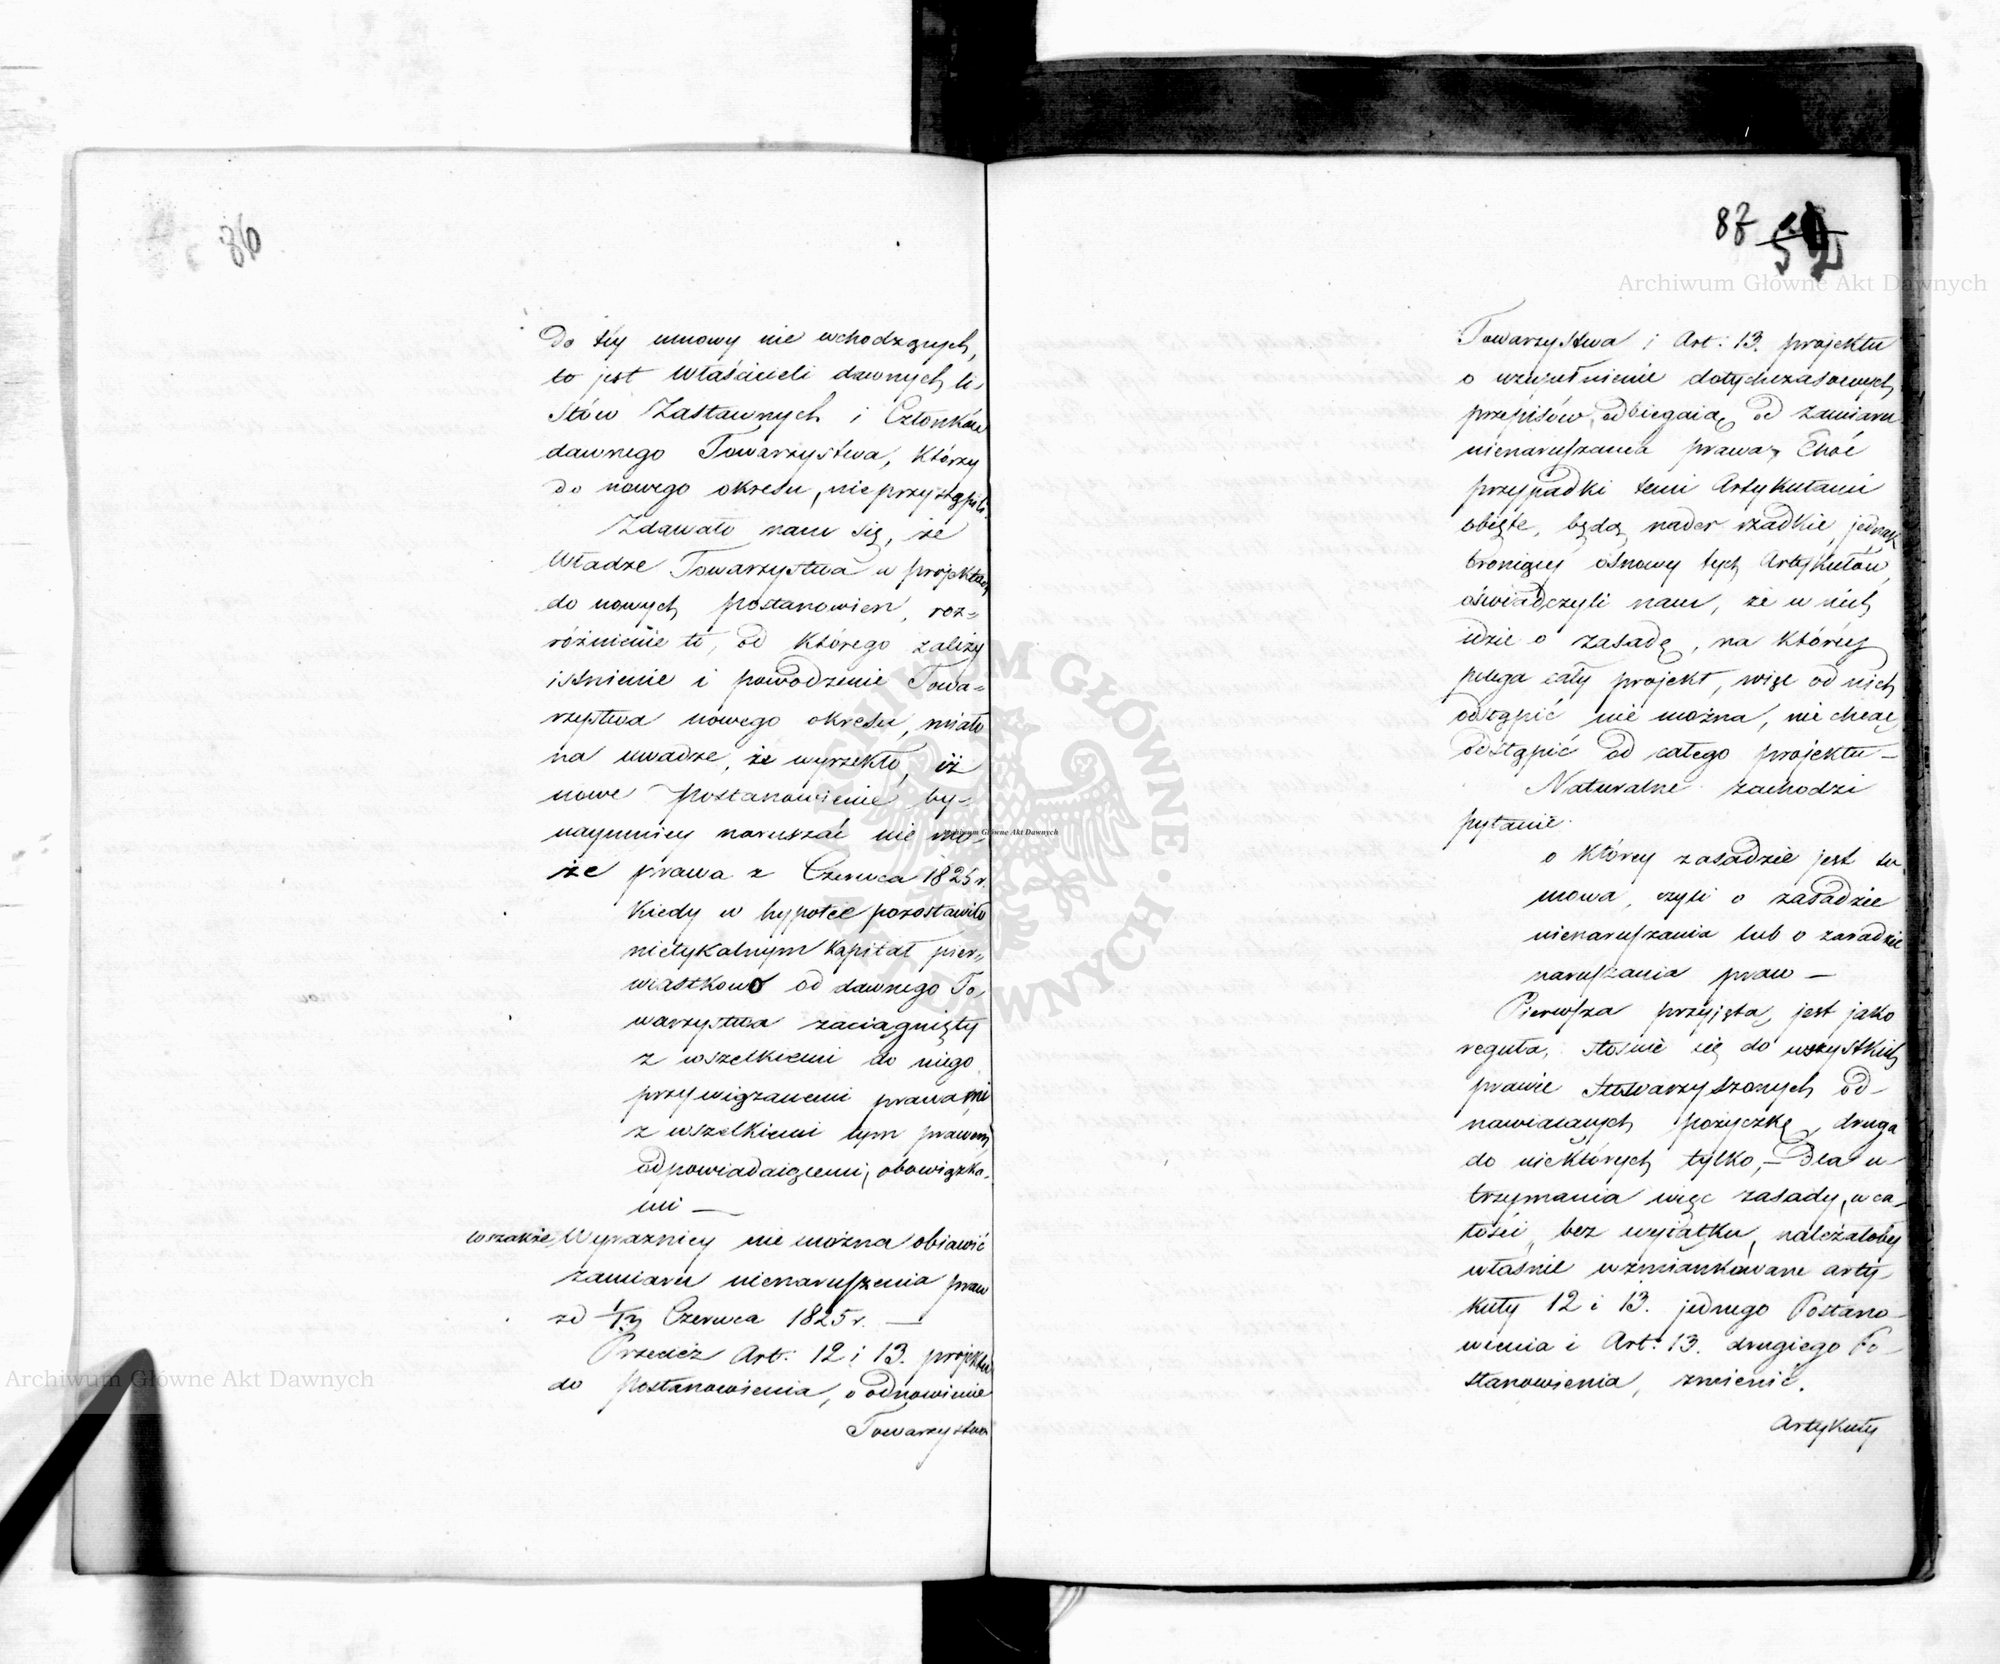 86
Do tey umowy nie wchodzących,
to jest właścicieli dawnych li-
stów Zastawnych i Członków
dawnego Towarzystwa, którzy
do nowego okresu, nie przystąpili.
Zdawało nam się, że
Władze Towarzystwa w projektach
do nowych postanowień, roz-
różnienie to, od którego zależy
istnienie i powodzenie Towa-
rzystwa nowego okresu, miało
na uwadze, że wyrzekło, iż
nowe postanowienie by-
naymniey naruszać nie mo-
że prawa z Czerwca 1825 r.
Kiedy w hypotece pozostawiło
nietykalnym Kapitał pier-
wiastkowo od dawnego To-
warzystwa zaciągnięty
z wszelkiemi do niego
przywiązanemi prawami
z wszelkiemi tym prawom
odpowiadaiącemi obowiązka-
mi —
wszakże Wyrazniey nie można obiawić
zamiaru nienaruszenia praw
zd 1/13 Czerwca 1825 r. —
Przecież Art: 12 i 13. projektu
do postanowienia, o odnowienie
Towarzystwa
87 52
Towarzystwa i Art: 13. projektu
o uzupełnienie dotychczasowych
przepisów, odbiegaią od zamiaru
nienaruszania prawa, Choć
przypadki temi Artykułami
obięte, będą nader rzadkie, jednak
broniący osnowy tych Artykułów
oświadczyli nam, że w nich
idzie o zasadę, na którey
polega cały projekt, więc od nich
odstąpić nie można, nie chcąc
odstąpić od całego projektu —
Naturalne zachodzi
pytanie.
o którey zasadzie jest tu
mowa, czyli o zasadzie
nienaruszania lub o zasadzie
naruszania praw —
Pierwsza przyięta jest jako
reguła, stosuie się do wszystkich
prawie Stowarzyszonych od-
nawiaiących pożyczkę, druga
do niektórych tylko, — Dla u-
trzymania więc zasady, w ca-
łości, bez wyiątku, należałoby
właśnie wzmiankowane arty-
kuły 12 i 13. jednego Postano-
wienia i Art: 13. drugiego Po-
stanowienia, zmienić.
Artykuły
Archiwum Główne Akt Dawnych
Archiwum Główne Akt Dawnych
Archiwum Główne Akt Dawnych
ARCHIWUM GŁÓWNE AKT DAWNYCH